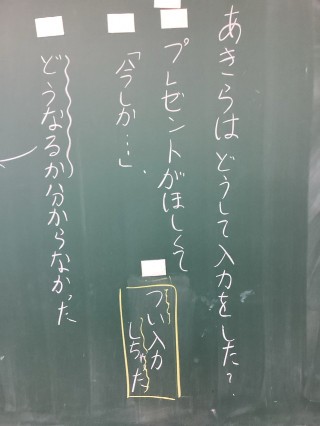 あきらはどうして入力をした？
プレゼントがほしくて
「今しか…」
つい入力
しちゃった
どうなるか分からなかった